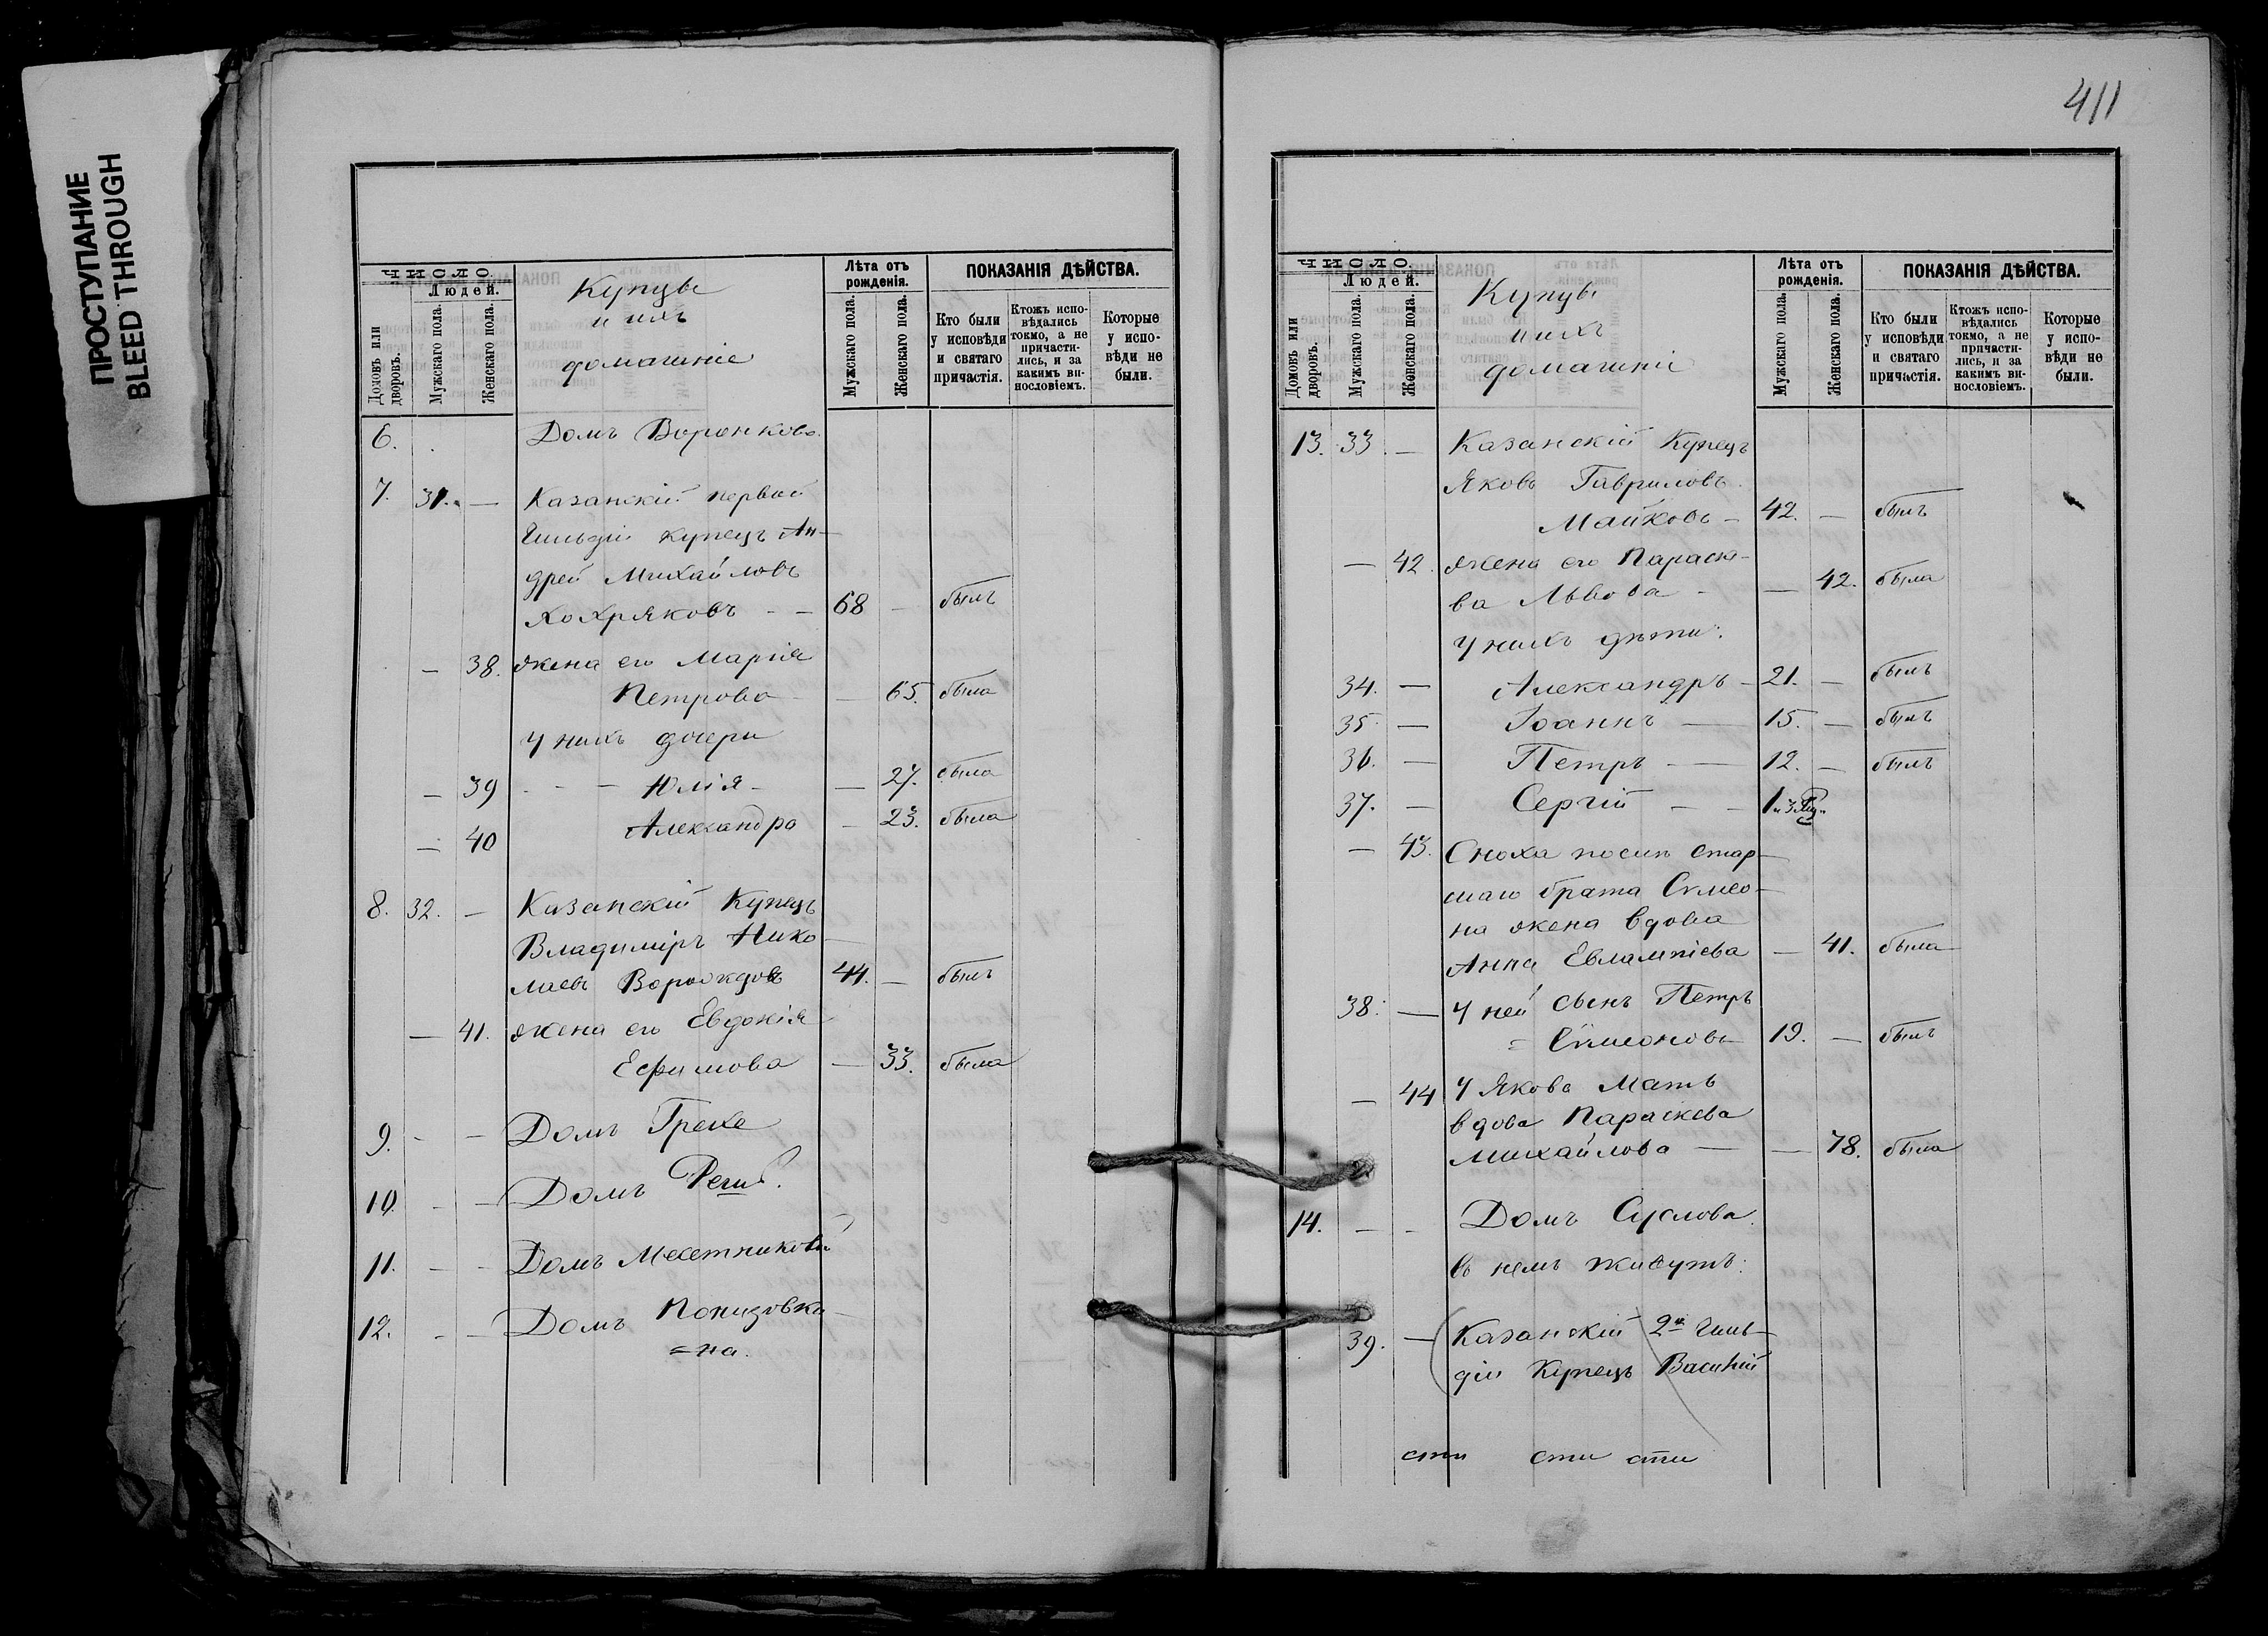 ПРОСТУПАНИЕ
BLEED THROUGH
ЧИСЛО.
Людей.
Домовъ или дворовъ.
Мужскаго пола.
Женскаго пола.
Купцы
и ихъ
домашніе
Лѣта отъ рожденія.
Мужскаго пола.
Женскаго пола.
ПОКАЗАНІЯ ДѢЙСТВА.
Кто были у исповѣди и святаго причастія.
Ктожъ испо-вѣдались токмо, а не причасти-лись, и за какимъ ви-нословіемъ.
Которые у испо-вѣди не были.
6. Домъ Воронкова.
7. 31. — Казанскій первой
Гильдіи купецъ Ан-
дрей Михайловъ
Хохряковъ - - 68 - былъ
— 38. жена его Марія
Петрова — 65. была
У нихъ дочери
— 39 - - - Юлія - — 27. была
— 40 Александра — 23. была
8. 32. — Казанскій Купецъ
Владиміръ Нико-
лаевъ 44. — былъ
— 41. жена его Евдокія
Ефимова — 33. была
9. - — Домъ
10. - — Домъ
11. - - Домъ
12. - — Домъ Понизовки-
=на.
411
ЧИСЛО.
Людей.
Домовъ или дворовъ.
Мужскаго пола.
Женскаго пола.
Купцы
и ихъ
домашніе
Лѣта отъ рожденія.
Мужскаго пола.
Женскаго пола.
ПОКАЗАНІЯ ДѢЙСТВА.
Кто были у исповѣди и святаго причастія.
Ктожъ испо-вѣдались токмо, а не причасти-лись, и за какимъ ви-нословіемъ.
Которые у испо-вѣди не были.
13. 33. — Казанскій Купецъ
Яковъ Гавриловъ
Майковъ — 42. — былъ
— 42. жена его Параске-
ва Львова - — 42. была
У нихъ дѣти:
34. — Александръ - 21. — былъ
35. — Іоаннъ — 15. — былъ
36. — Петръ — 12. — былъ
37. — Сергій — —
— 43. Сноха послѣ стар-
шаго брата Симео-
на жена вдова
Анна Евлампіева — 41. была
38. — У ней сынъ Петръ
= Симеоновъ 19. — былъ
— 44 У Якова Мать
вдова Параскева
Михайлова — — 78. была
14. — - Домъ Суслова.
въ немъ живутъ:
39. — Казанскій 2й Гиль-
діи Купецъ Василій
сти сти сти